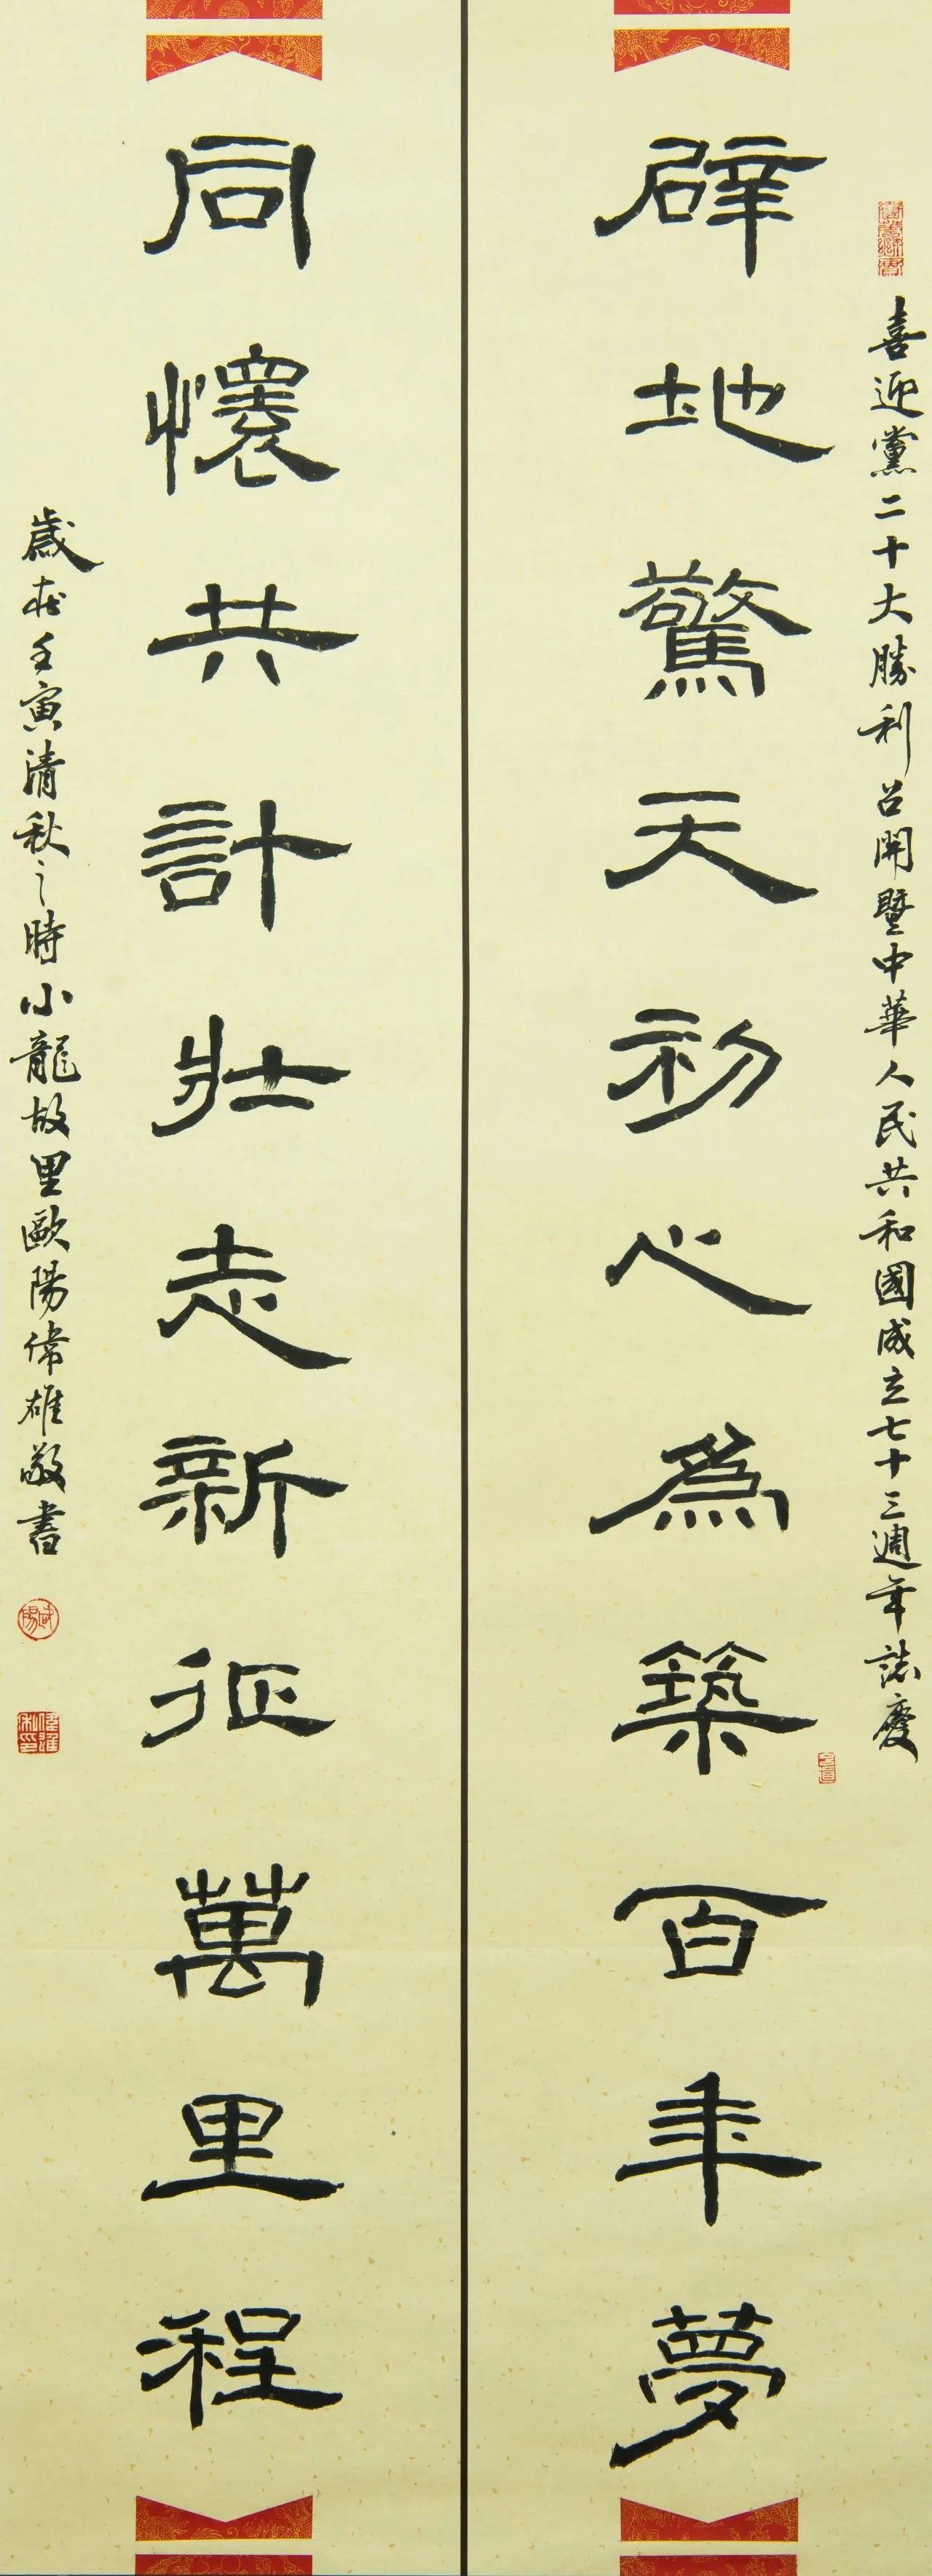 喜迎黨二十大勝利召開暨中華人民共和國成立七十三週年誌慶
辟地驚天初心為築百年夢
同懷共計壯志新征萬里程
歲在壬寅清秋之時小龍故里歐陽偉雄敬書